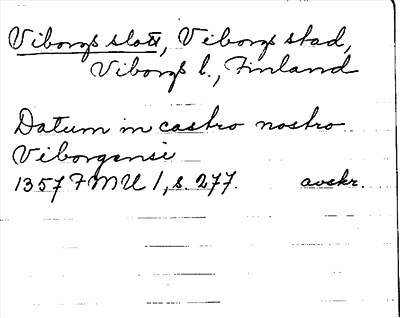 Viborgs slott, Viborgs stad,
Viborgs l., Finland
Datum in castro nostro
Viborgensi
1357 FMU 1, s. 277. avskr.